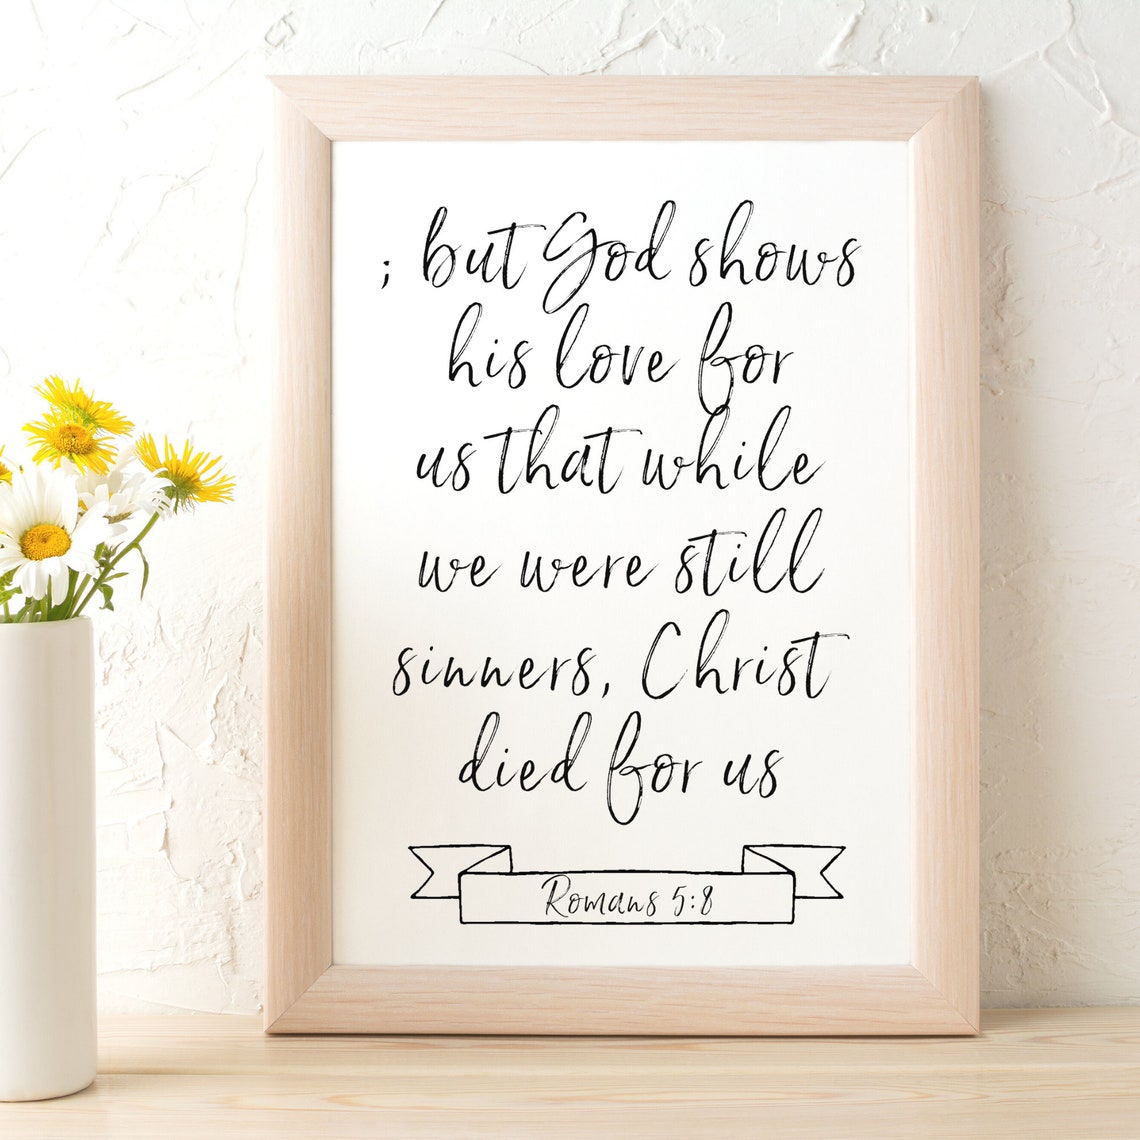 ; but God shows
his love for
us that while
we were still
sinners, Christ
died for us
Romans 5:8